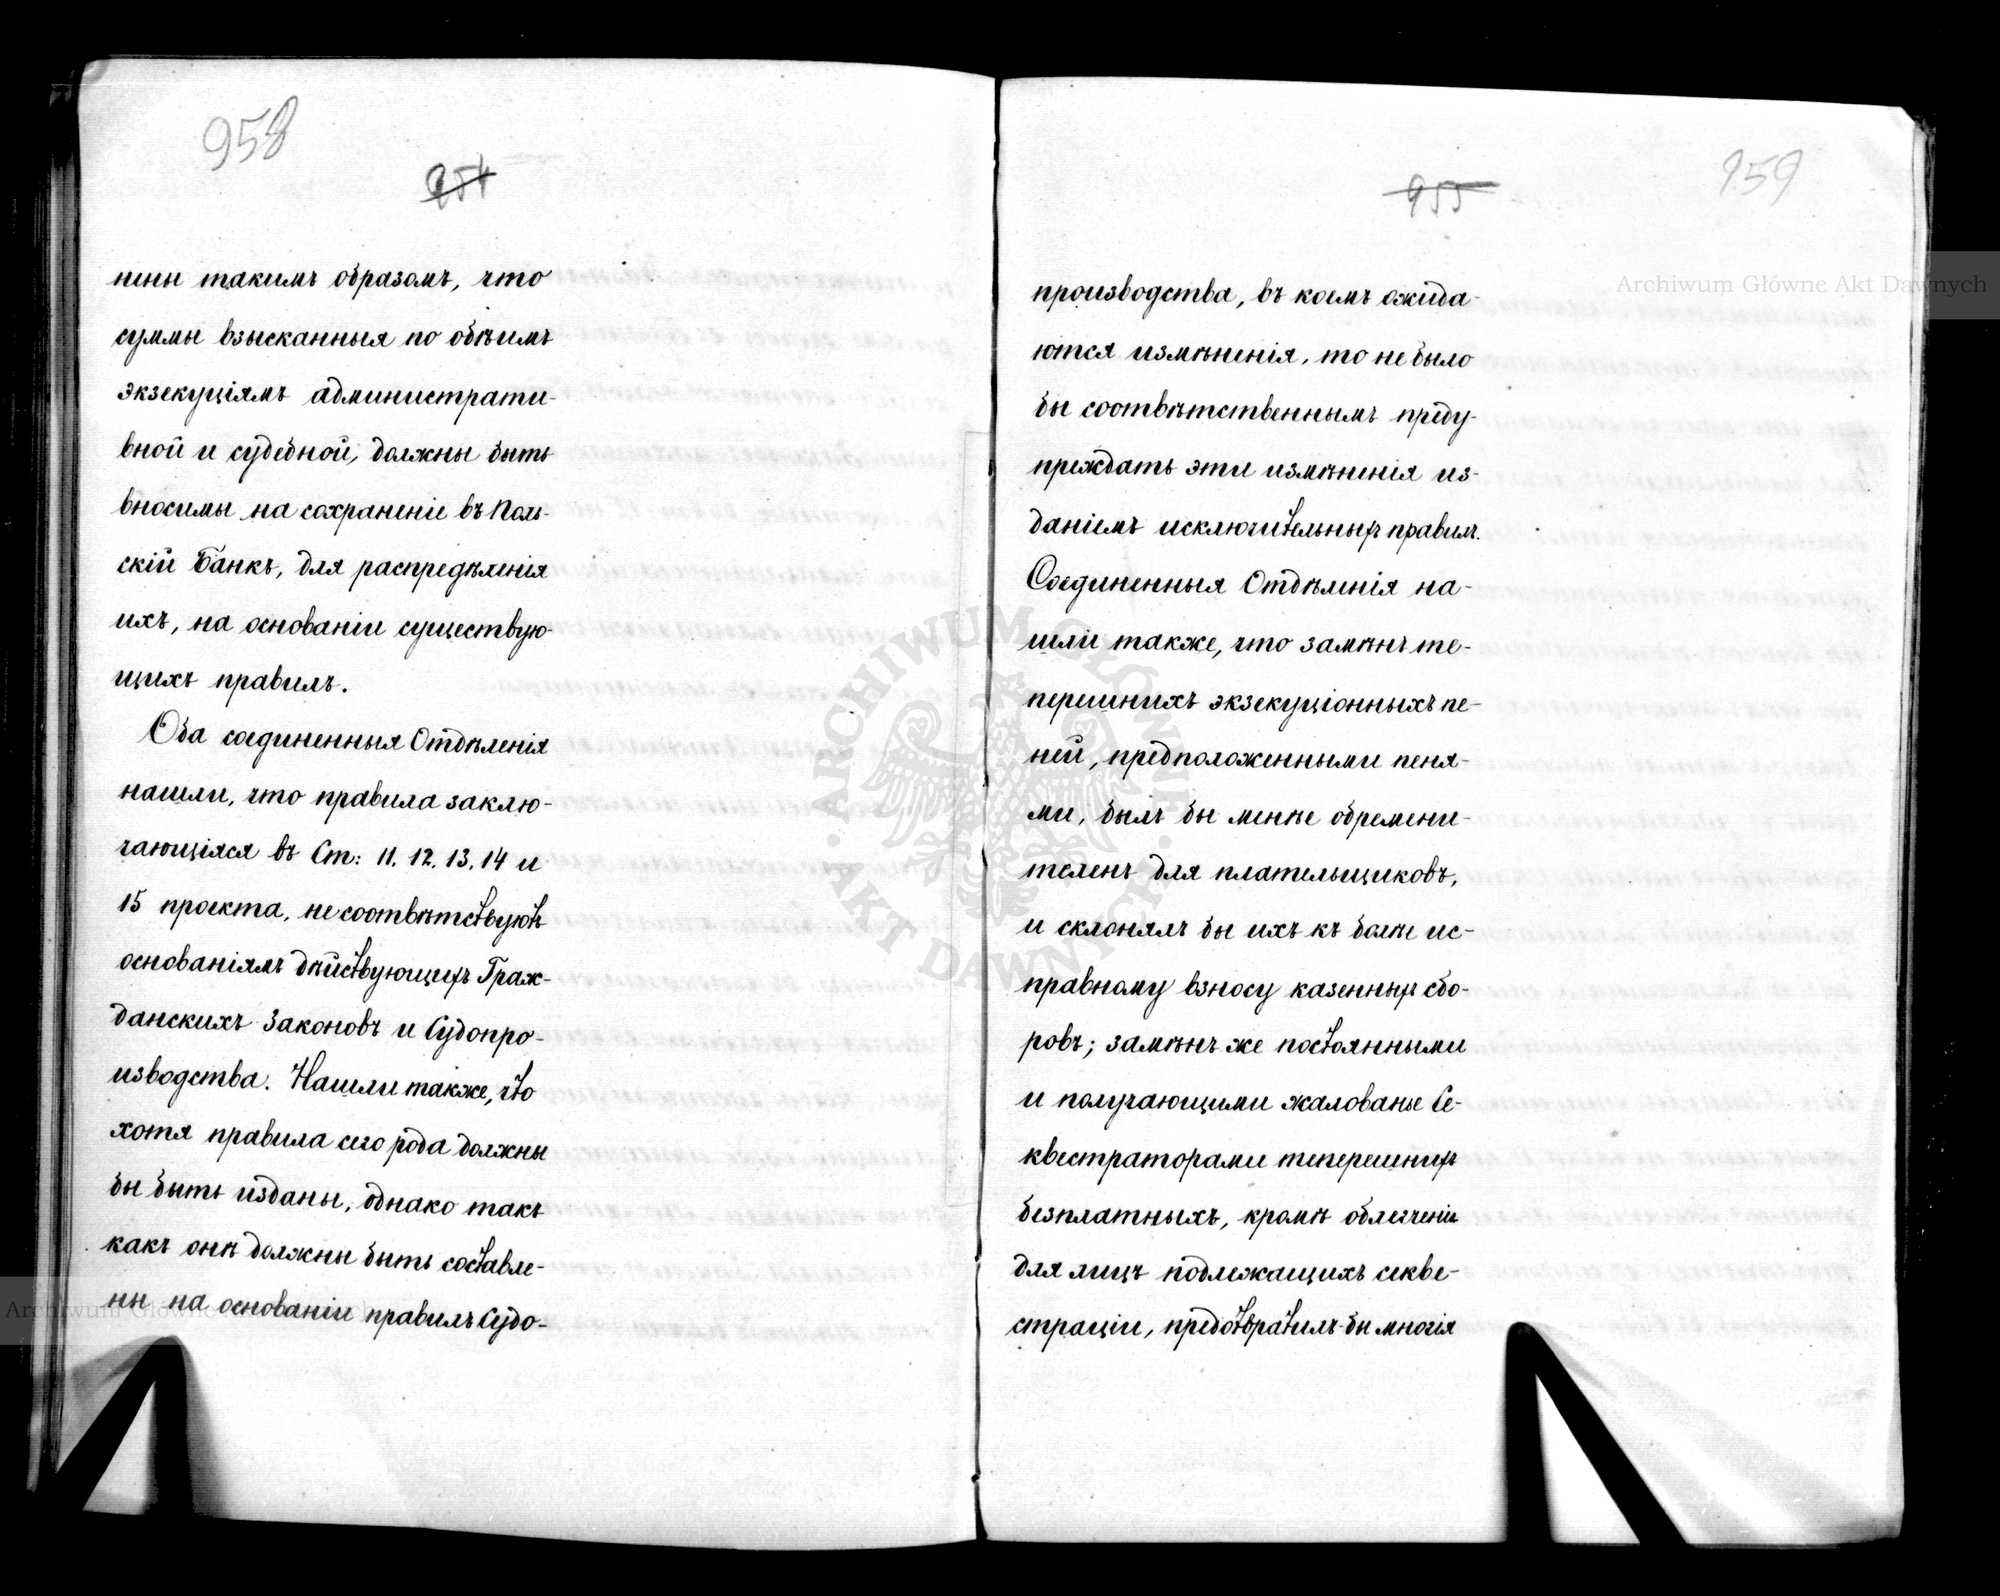 958
954
пены такимъ образомъ, что
суммы взысканныя по обѣимъ
экзекуціямъ администрати-
вной и судебной, должны быть
вносимы на сохраненіе въ Поль-
скій Банкъ, для распредѣленія
ихъ, на основаніи существую-
щихъ правилъ.
Оба соединенныя Отдѣленія
нашли, что правила заклю-
чающіяся въ Ст: 11. 12. 13. 14 и
15 проекта, не соотвѣтствуютъ
основаніямъ дѣйствующихъ Граж-
данскихъ Законовъ и Судопро-
изводства. Нашли также, что
хотя правила сего рода должны
бы быть изданы, однако такъ
какъ онѣ должны быть составле-
ны на основаніи правилъ Судо-
959
955
производства, въ коемъ ожида-
ются измѣненія, то не было
бы соотвѣтственнымъ преду-
преждать эти измѣненія из-
даніемъ исключительныхъ правилъ.
Соединенныя Отдѣленія на-
шли также, что замѣнъ те-
перешнихъ экзекуціонныхъ пе-
ней, предположенными пеня-
ми, былъ бы менѣе обремени-
теленъ для плательщиковъ,
и склонялъ бы ихъ къ болѣе ис-
правному взносу казенныхъ сбо-
ровъ; замѣнъ же постоянными
и получающими жалованье Се-
квестраторами теперешнихъ
безплатныхъ, кромѣ облегченія
для лицъ подлежащихъ секве-
страціи, предотвратилъ бы многія
Archiwum Główne Akt Dawnych
Archiwum Główne Akt Dawnych
ARCHIWUM GŁÓWNE AKT DAWNYCH